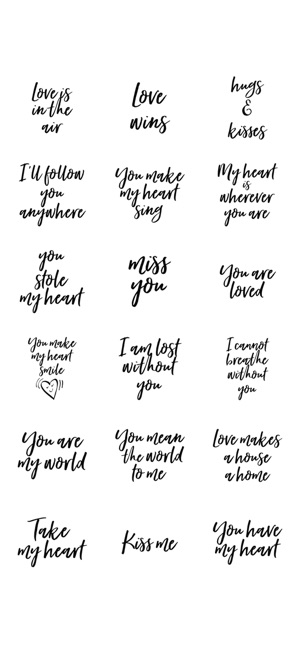 Love is
in the
air
Love
wins
hugs
&
kisses
I'll follow
you
anywhere
You make
my heart
sing
My heart
is
wherever
you are
you
stole
my heart
miss
you
You are
loved
You make
my heart
smile
I am lost
without
you
I cannot
breathe
without
you
You are
my world
You mean
the world
to me
Love makes
a house
a home
Take
my heart
Kiss me
You have
my heart